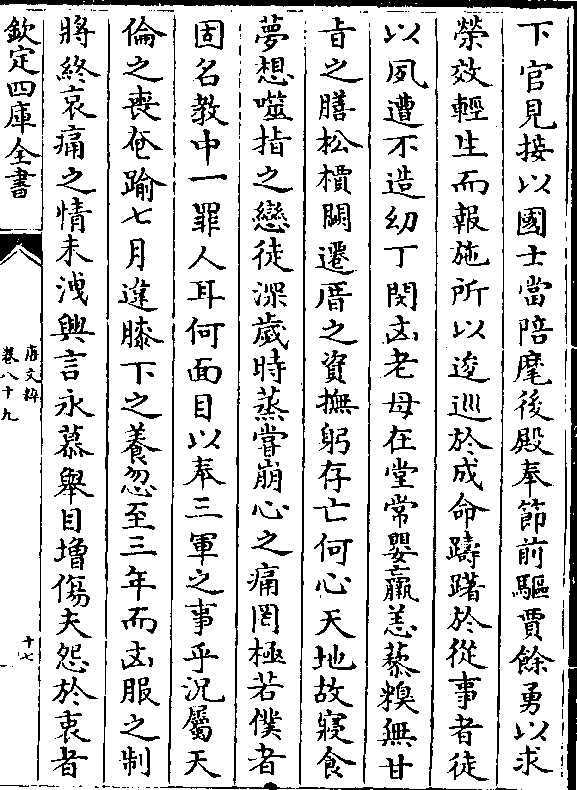 下官見接以國士當陪麾後殿奉節前驅賈餘勇以求
榮效輕生而報施所以逡巡於成命躊躇於從事者徒
以夙遭不造幼丁閔凶老母在堂常嬰羸恙藜糗無甘
旨之膳松檟闕遷厝之資撫躬存亡何心天地故寢食
夢想噬指之戀徒深歲時蒸嘗崩心之痛罔極若僕者
固名教中一罪人耳何面目以奉三軍之事乎况屬天
倫之喪奄踰七月違膝下之養忽至三年而凶服之制
將終哀痛之情未洩興言永慕舉目增傷夫怨於衷者
欽定四庫全書
唐文粹
卷八十九
十七